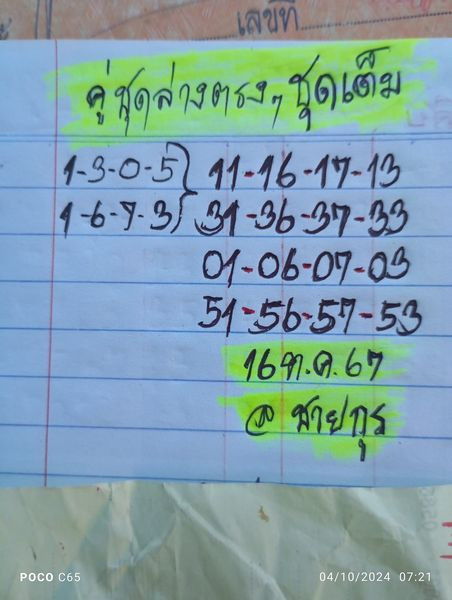 เลขที่
คู่ชุดล่างตรงๆ ชุดเต็ม
1-3-0-5} 11-16-17-13
1-6-7-3} 31-36-37-33
01-06-07-03
51-56-57-53
16 ต.ค. 67
@ ชายกุร
POCO C65 04/10/2024 07:21